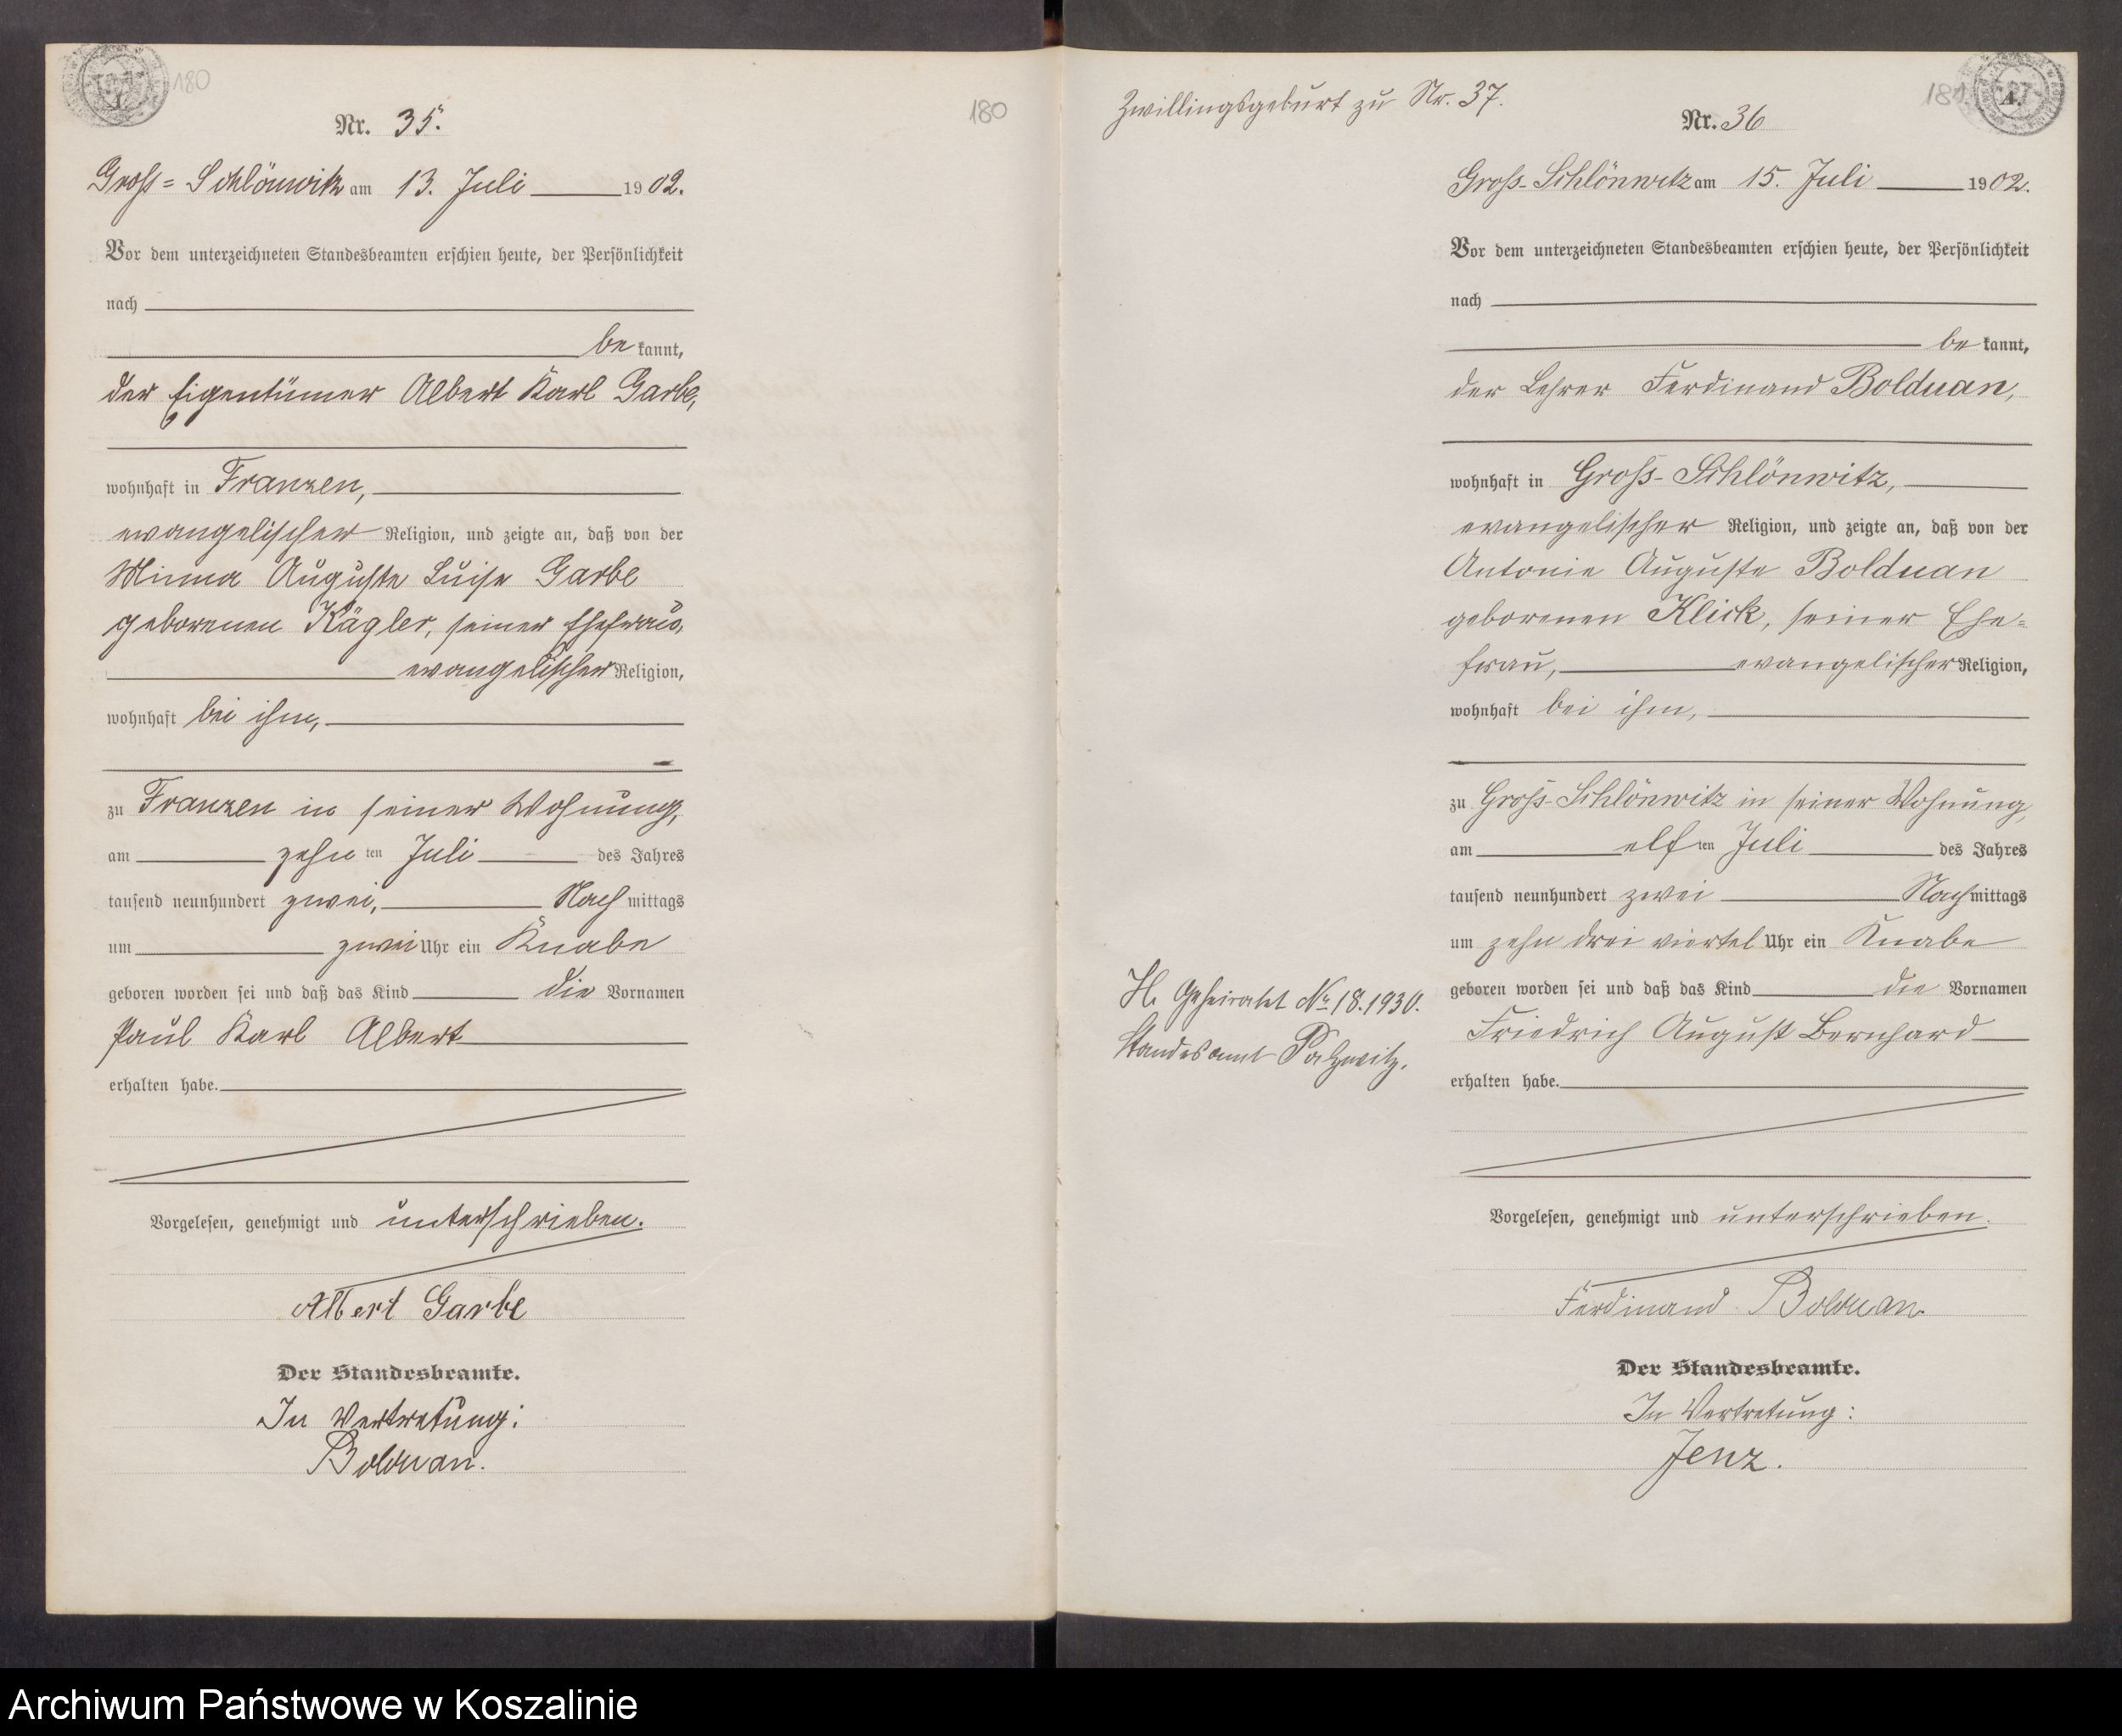 180
180
Nr. 35.
Groß=Schlönwitz am 13. Juli 1902.
Vor dem unterzeichneten Standesbeamten erschien heute, der Persönlichkeit
nach
be kannt,
der Eigentümer Albert Karl Garbe,
wohnhaft in Franzen,
evangelischer Religion, und zeigte an, daß von der
Minna Auguste Luise Garbe
geborenen Kägler, seiner Ehefrau,
evangelischer Religion,
wohnhaft bei ihm,
zu Franzen in seiner Wohnung,
am zehn ten Juli des Jahres
tausend neunhundert zwei, Nach mittags
um zwei Uhr ein Knabe
geboren worden sei und daß das Kind die Vornamen
Paul Karl Albert
erhalten habe.
Vorgelesen, genehmigt und unterschrieben.
Albert Garbe
Der Standesbeamte.
In Vertretung:
Bolduan.
Zwillingsgeburt zu Nr. 37.
181
Nr. 36
Groß-Schlönwitz am 15. Juli 1902.
Vor dem unterzeichneten Standesbeamten erschien heute, der Persönlichkeit
nach
be kannt,
der Lehrer Ferdinand Bolduan,
wohnhaft in Groß-Schlönwitz,
evangelischer Religion, und zeigte an, daß von der
Antonie Auguste Bolduan
geborenen Klick, seiner Ehe=
frau, evangelischer Religion,
wohnhaft bei ihm,
zu Groß-Schlönwitz in seiner Wohnung,
am elf ten Juli des Jahres
tausend neunhundert zwei Nach mittags
um zehn drei viertel Uhr ein Knabe
geboren worden sei und daß das Kind die Vornamen
Friedrich August Bernhard
erhalten habe.
H. Geheiratet No 18.1930.
Standesamt
Vorgelesen, genehmigt und unterschrieben.
Ferdinand Bolduan.
Der Standesbeamte.
In Vertretung:
Jenz.
Archiwum Państwowe w Koszalinie